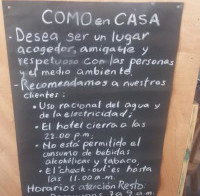 COMO en CASA
- Desea ser un lugar
acogedor, amigable y
respetuoso con las personas
y el medio ambiente.
- Recomendamos a nuestros
clientes:
• Uso racional del agua y
de la electricidad;
• El hotel cierra a las
22.00 p.m.
• No está permitido el
consumo de bebidas
alcohólicas y tabaco
• El "check-out" es hasta
las 11.00 a.m.
Horarios atención Resto.